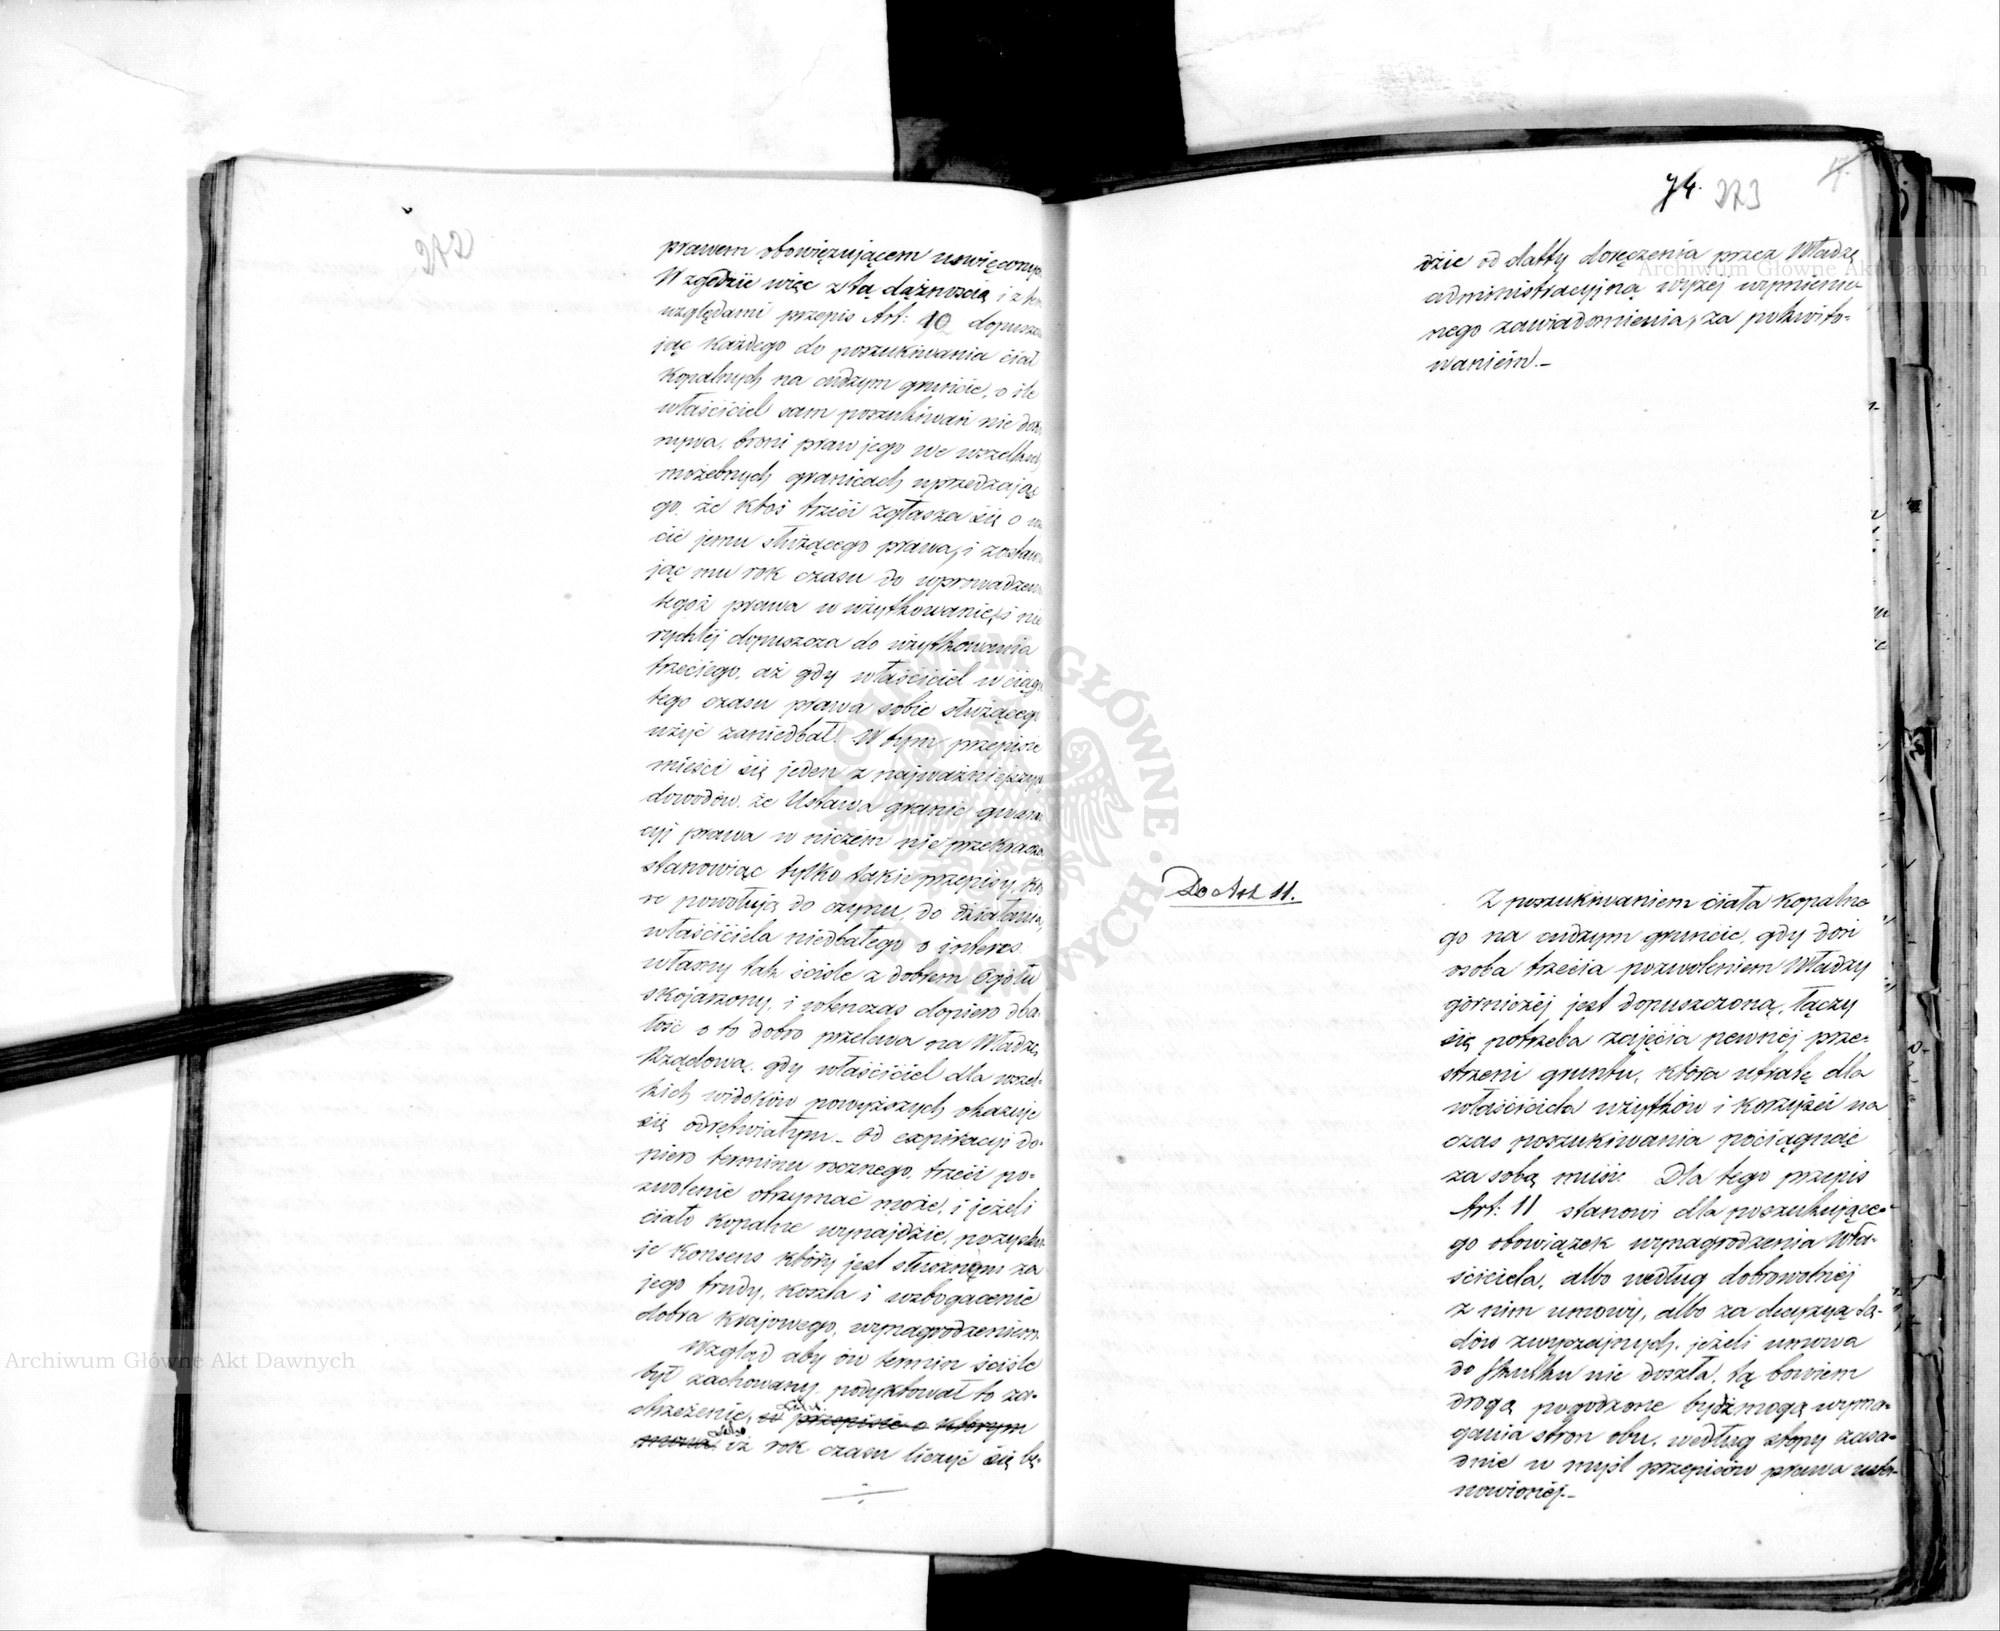 272
prawem obowięzującem uswięconych
W zgodzie więc z tą dążnością i z temi
względami przepis Art: 10 dopuszcza
jąc każdego do poszukiwania ciał
kopalnych na cudzym gruncie, o ile
właściciel sam poszukiwań nie doko
nywa, broni praw jego we wszelkich
możebnych granicach uprzedzając
go, że ktoś trzeci zgłasza się o
cie jemu służącego prawa, i zostawu
jąc mu rok czasu do wprowadzenia
tegoż prawa w użytkowanie, i nie
rychléj dopuszcza do użytkowania
trzeciego, aż gdy właściciel w ciągu
tego czasu prawa sobie służącego
użyć zaniedbał. W tym przepisie
mieści się jeden z najważniejszych
dowodów, że Ustawa granic gwaran
cyj prawa w niczém nie przekracza
stanowiąc tylko takie przepisy, któ
re powołują do czynu, do działania,
właściciela niedbałego o interes
własny tak ściśle z dobrem Ogółu
skojarzony, i wtenczas dopiero dba
łość o to dobro przelewa na Władzę
Rządową, gdy właściciel dla wszel-
kich widoków powyższych okazuje
się odrętwiałym. Od expiracyi do-
piero terminu rocznego, trzeci po-
zwolenie otrzymać może, i jeżeli
ciało kopalne wynajdzie, pozysku-
je Konsens który jest słusznem za
jego trudy, koszta i wzbogacenie
dobra krajowego, wynagrodzeniem.
Wzgląd aby ów termin ściśle
był zachowany, podyktował to za-
strzeżenie, przepisie o którym
mowa, iż rok czasu liczyć się bę-
74. 273
dzie od datty doręczenia przez Władzę
administracyjną wyżéj wymienio-
nego zawiadomienia, za pokwito-
waniem.—
Do Art 11.
Z poszukiwaniem ciała kopalne
go na cudzym gruncie, gdy doń
osoba trzecia pozwoleniem Władzy
górniczéj jest dopuszczoną, łączy
się potrzeba zajęcia pewnéj prze-
strzeni gruntu, która utratę dla
właściciela użytków i korzyści na
czas poszukiwania pociągnąć
za sobą musi. Dla tego przepis
Art: 11 stanowi dla poszukujące-
go obowiązek wynagrodzenia Wła-
ściciela, albo według dobrowolnéj
z nim umowy, albo za decyzyą Są-
dów zwyczajnych, jeżeli umowa
do skutku nie doszła, tą bowiem
drogą pogodzone bydź mogą wyma-
gania stron obu, według stopy zasa-
dnie w myśl przepisów prawa usta-
nowionéj.—
Archiwum Główne Akt Dawnych
Archiwum Główne Akt Dawnych
ARCHIWUM GŁÓWNE AKT DAWNYCH